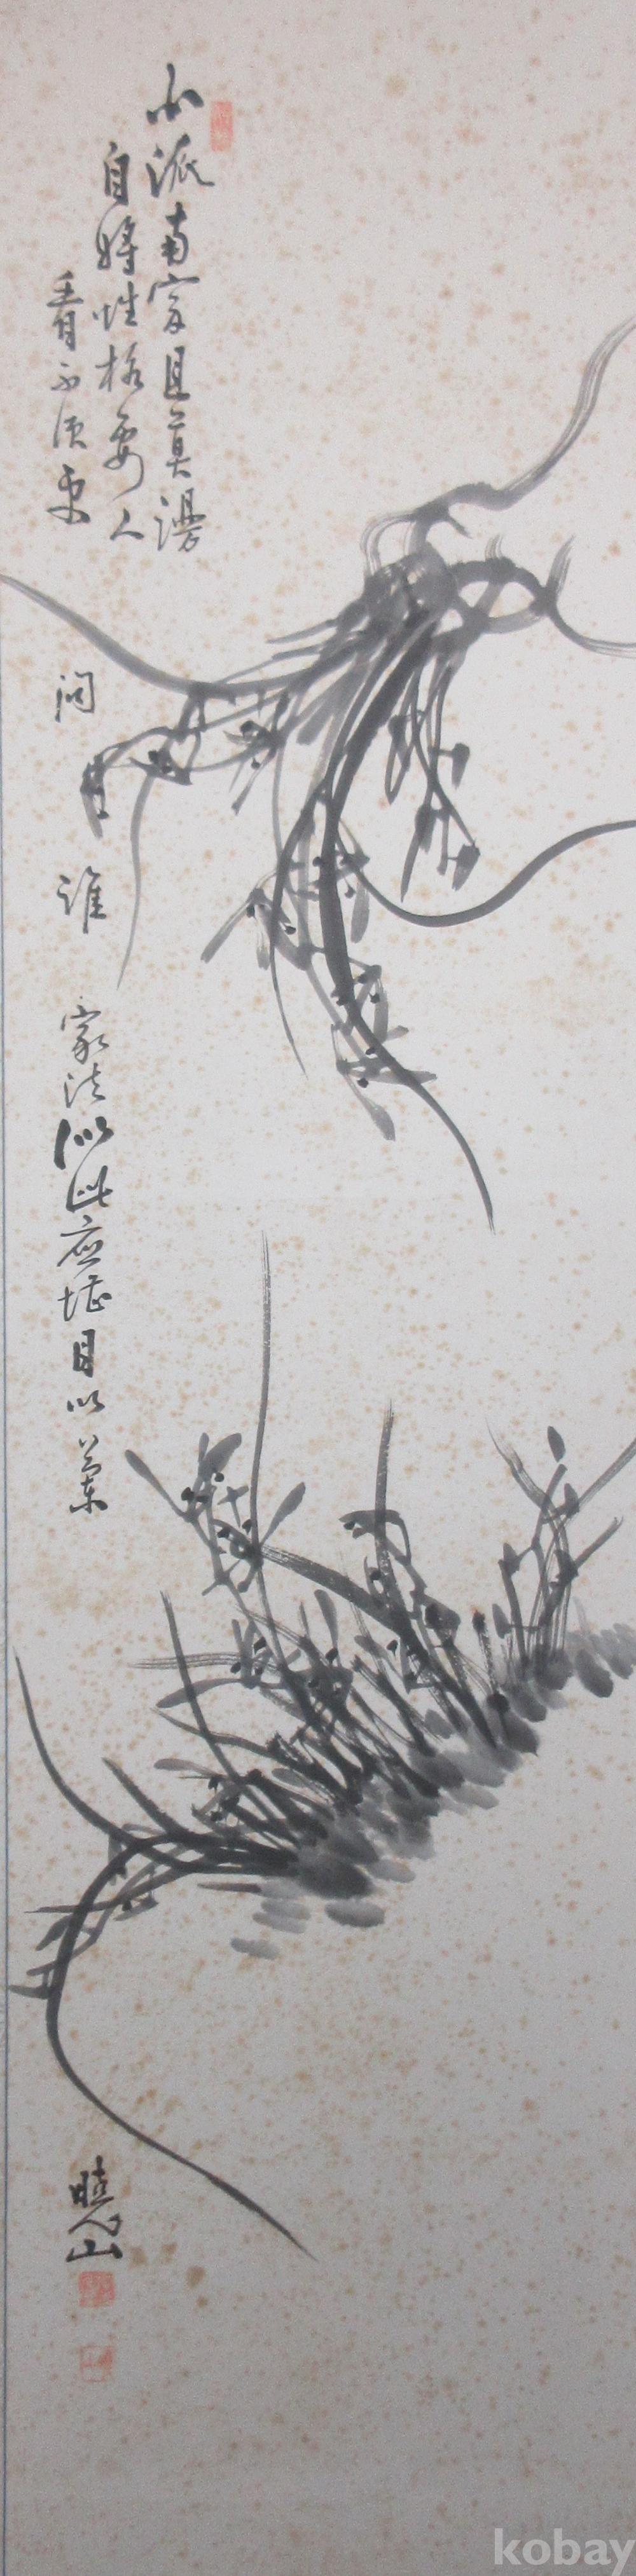 小派南宗且莫謾
自將性格要人
看不須更
問是誰家法似此應堪目以蘭
曉山
kobay